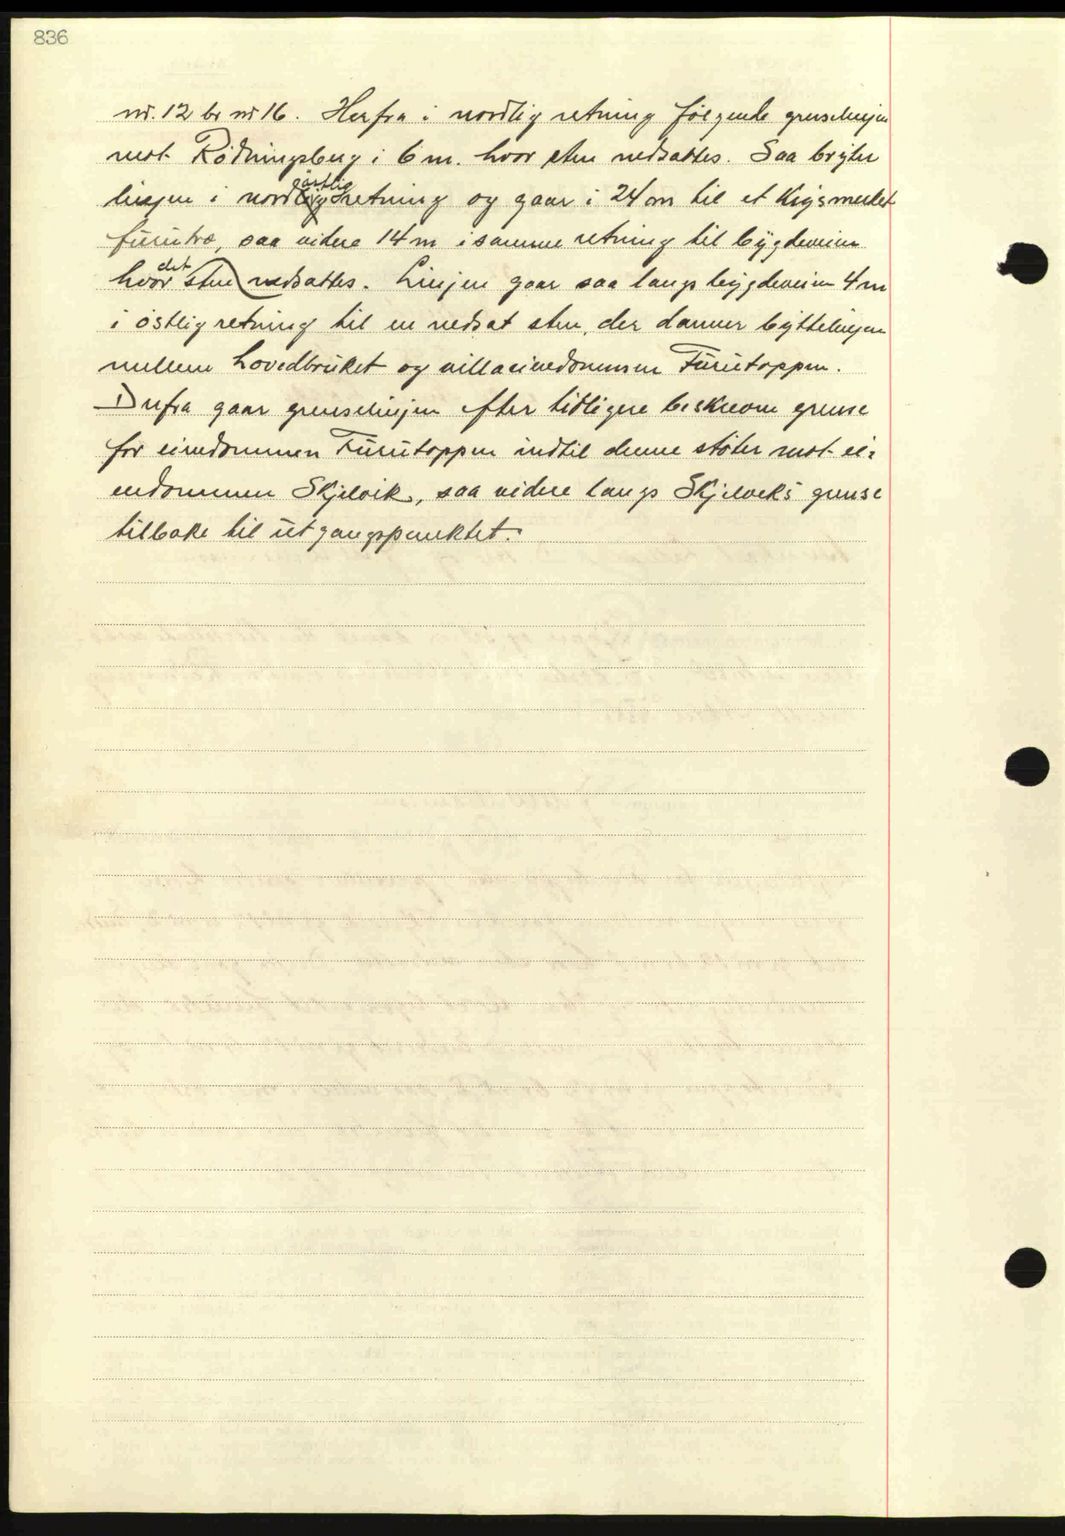 836
nr. 12 br nr 16. Herfra i nordlig retning følgende grenselinjen
mot Rødningsberg i 6 m. hvor sten nedsattes. Saa bryter
linjen i nordøstlig retning og gaar i 24 m til et krysmerket
furutræ, saa videre 14 m i samme retning til bygdeveien
hvor det nedsattes sten. Linjen gaar saa langs bygdeveien 4 m
i østlig retning til en nedsat sten, der danner byttelinjen
mellem hovedbruket og villaeiendommen Furutoppen.
Derfra gaar grenselinjen efter tidligere beskreven grense
for eiendommen Furutoppen indtil denne støter mot ei-
endommen Skjelvik, saa videre langs Skjelviks grense
tilbake til utgangspunktet.